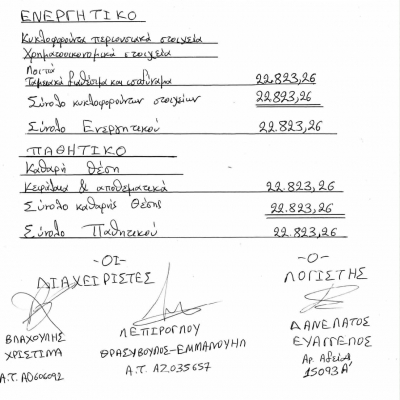 ΕΝΕΡΓΗΤΙΚΟ
Κυκλοφορούντα περιουσιακά στοιχεία
Χρηματοοικονομικά στοιχεία
Λοιπά
Ταμειακά διαθέσιμα και ισοδύναμα 22.823,26
Σύνολο κυκλοφορούντων στοιχείων 22.823,26
Σύνολο Ενεργητικού 22.823,26
ΠΑΘΗΤΙΚΟ
Καθαρή Θέση
Κεφάλαια & αποθεματικά 22.823,26
Σύνολο καθαρής Θέσης 22.823,26
Σύνολο Παθητικού 22.823,26
-ΟΙ-
ΔΙΑΧΕΙΡΙΣΤΕΣ
-Ο-
ΛΟΓΙΣΤΗΣ
ΒΛΑΧΟΥΛΗΣ
ΧΡΙΣΤΙΜΑ
Α.Τ. ΑΟ606092
ΛΕΠΙΡΟΓΛΟΥ
ΘΡΑΣΥΒΟΥΛΟΣ-ΕΜΜΑΝΟΥΗΛ
Α.Τ. ΑΖ035657
ΔΑΝΕΛΑΤΟΣ
ΕΥΑΓΓΕΛΟΣ
Αρ. Αδείας
15093 Α'